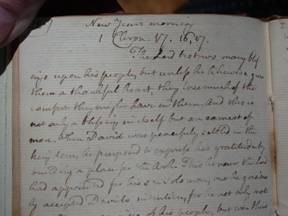 New Years morning
1 Chron. 17. 16, 17.
The Lord bestows many bles
sings upon his people, but unless he likewise give
them a thankful heart, they lose much of the
comfort they might have in them. And this is
not only a blessing in itself but an earnest of
more. When David was peacefully settled in the
kingdom, he purposed to express his gratitude by
building a place for the Ark. This honour the Lord
had appointed for his son
accepted David's intention, for he not only
of his people, but